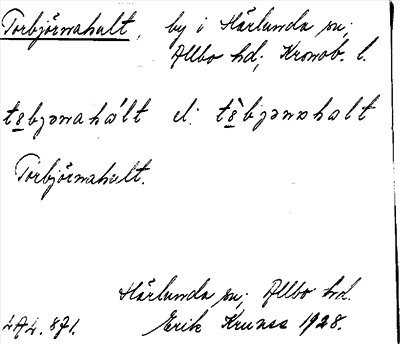 Torbjörnahult, by i Härlunda sn;
Allbo hd; Kronob. l.
tɵbjənahált el. tɵ̀bjənahalt
Torbjörnahult.
Härlunda sn; Allbo hd.
Erik 1928.